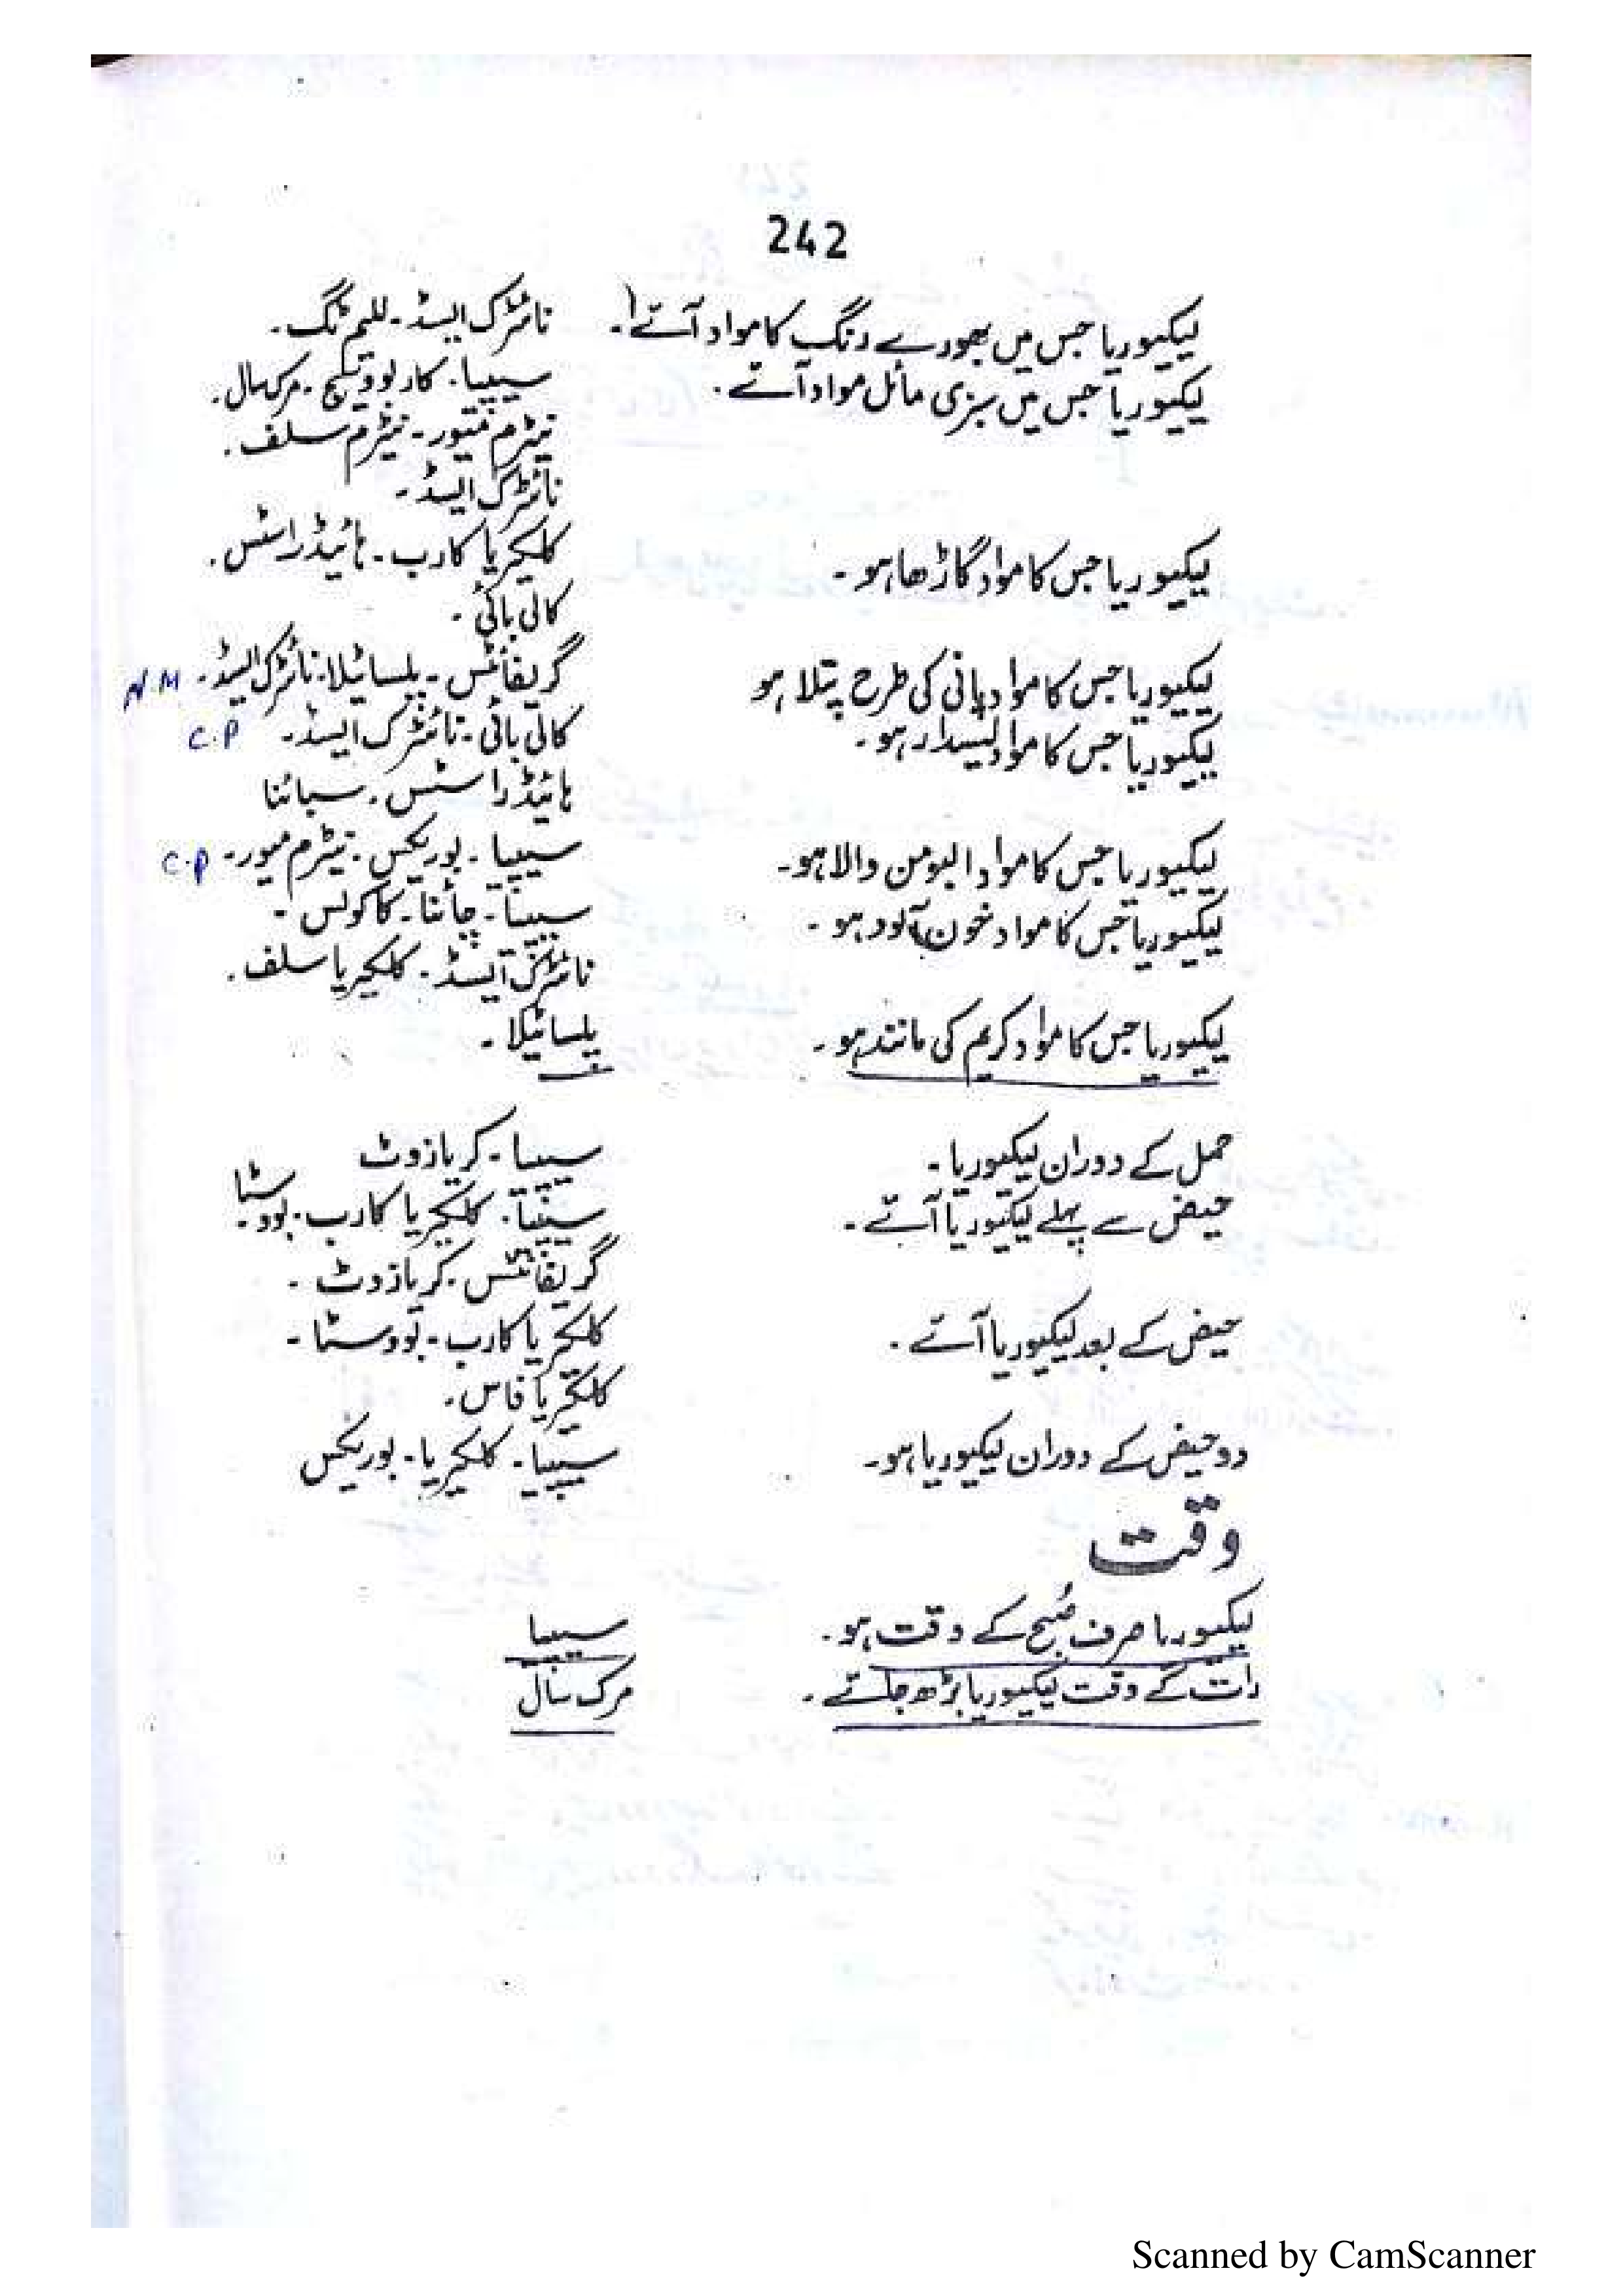 242
لیکیوریا جس میں بھورے رنگ کا مواد آئے۔ نائٹرک ایسڈ۔ للیم ٹگ۔
لیکیوریا جس میں سبزی مائل مواد آئے۔ سیپیا۔ کاربوویج۔ مرک سال۔
نیٹرم میور۔ نیٹرم سلف۔
نائٹرک ایسڈ۔
لیکیوریا جس کا مواد گاڑھا ہو۔ کلکیریا کارب۔ ہائیڈراسٹس۔
کالی بائی۔
لیکیوریا جس کا مواد پانی کی طرح پتلا ہو گریفائٹس۔ پلساٹیلا۔ نائٹرک ایسڈ۔ N.M
لیکیوریا جس کا مواد لیسدار ہو۔ کالی بائی۔ نائٹرک ایسڈ۔ C.P
ہائیڈراسٹس۔ سبائنا
لیکیوریا جس کا مواد البومن والا ہو۔ سیپیا۔ بوریکس۔ نیٹرم میور۔ C.P
لیکیوریا جس کا مواد خون آلود ہو۔ سیپیا۔ چائنا۔ کاکولس۔
نائٹرک ایسڈ۔ کلکیریا سلف۔
لیکیوریا جس کا مواد کریم کی مانند ہو۔ پلساٹیلا۔
حمل کے دوران لیکیوریا۔ سیپیا۔ کریازوٹ
حیض سے پہلے لیکیوریا آئے۔ سیپیا۔ کلکیریا کارب۔ بووسٹا۔
گریفائٹس۔ کریازوٹ۔
حیض کے بعد لیکیوریا آئے۔ کلکیریا کارب۔ بووسٹا۔
کلکیریا فاس۔
دو حیض کے دوران لیکیوریا ہو۔ سیپیا۔ کلکیریا۔ بوریکس
وقت
لیکیوریا صرف صُبح کے وقت ہو۔ سیپیا
رات کے وقت لیکیوریا بڑھ جائے۔ مرک سال
Scanned by CamScanner